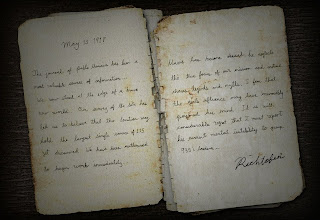 May
The journal of has been a
most valuable source of information.
We now stand at the edge of a brave
new world. Our survey of the site has
led us to believe that this location may
hold the largest single source of 115
yet discovered. We have been authorized
to begin work immediately...
Maxis has become obsessed he neglects
the true focus of our mission and instead
studies legends and myths. I fear that
the influence may have irrevocably
poisoned his mind. It is with
considerable regret that I must report
his current mental instability to group
935's leaders...
Richtofen